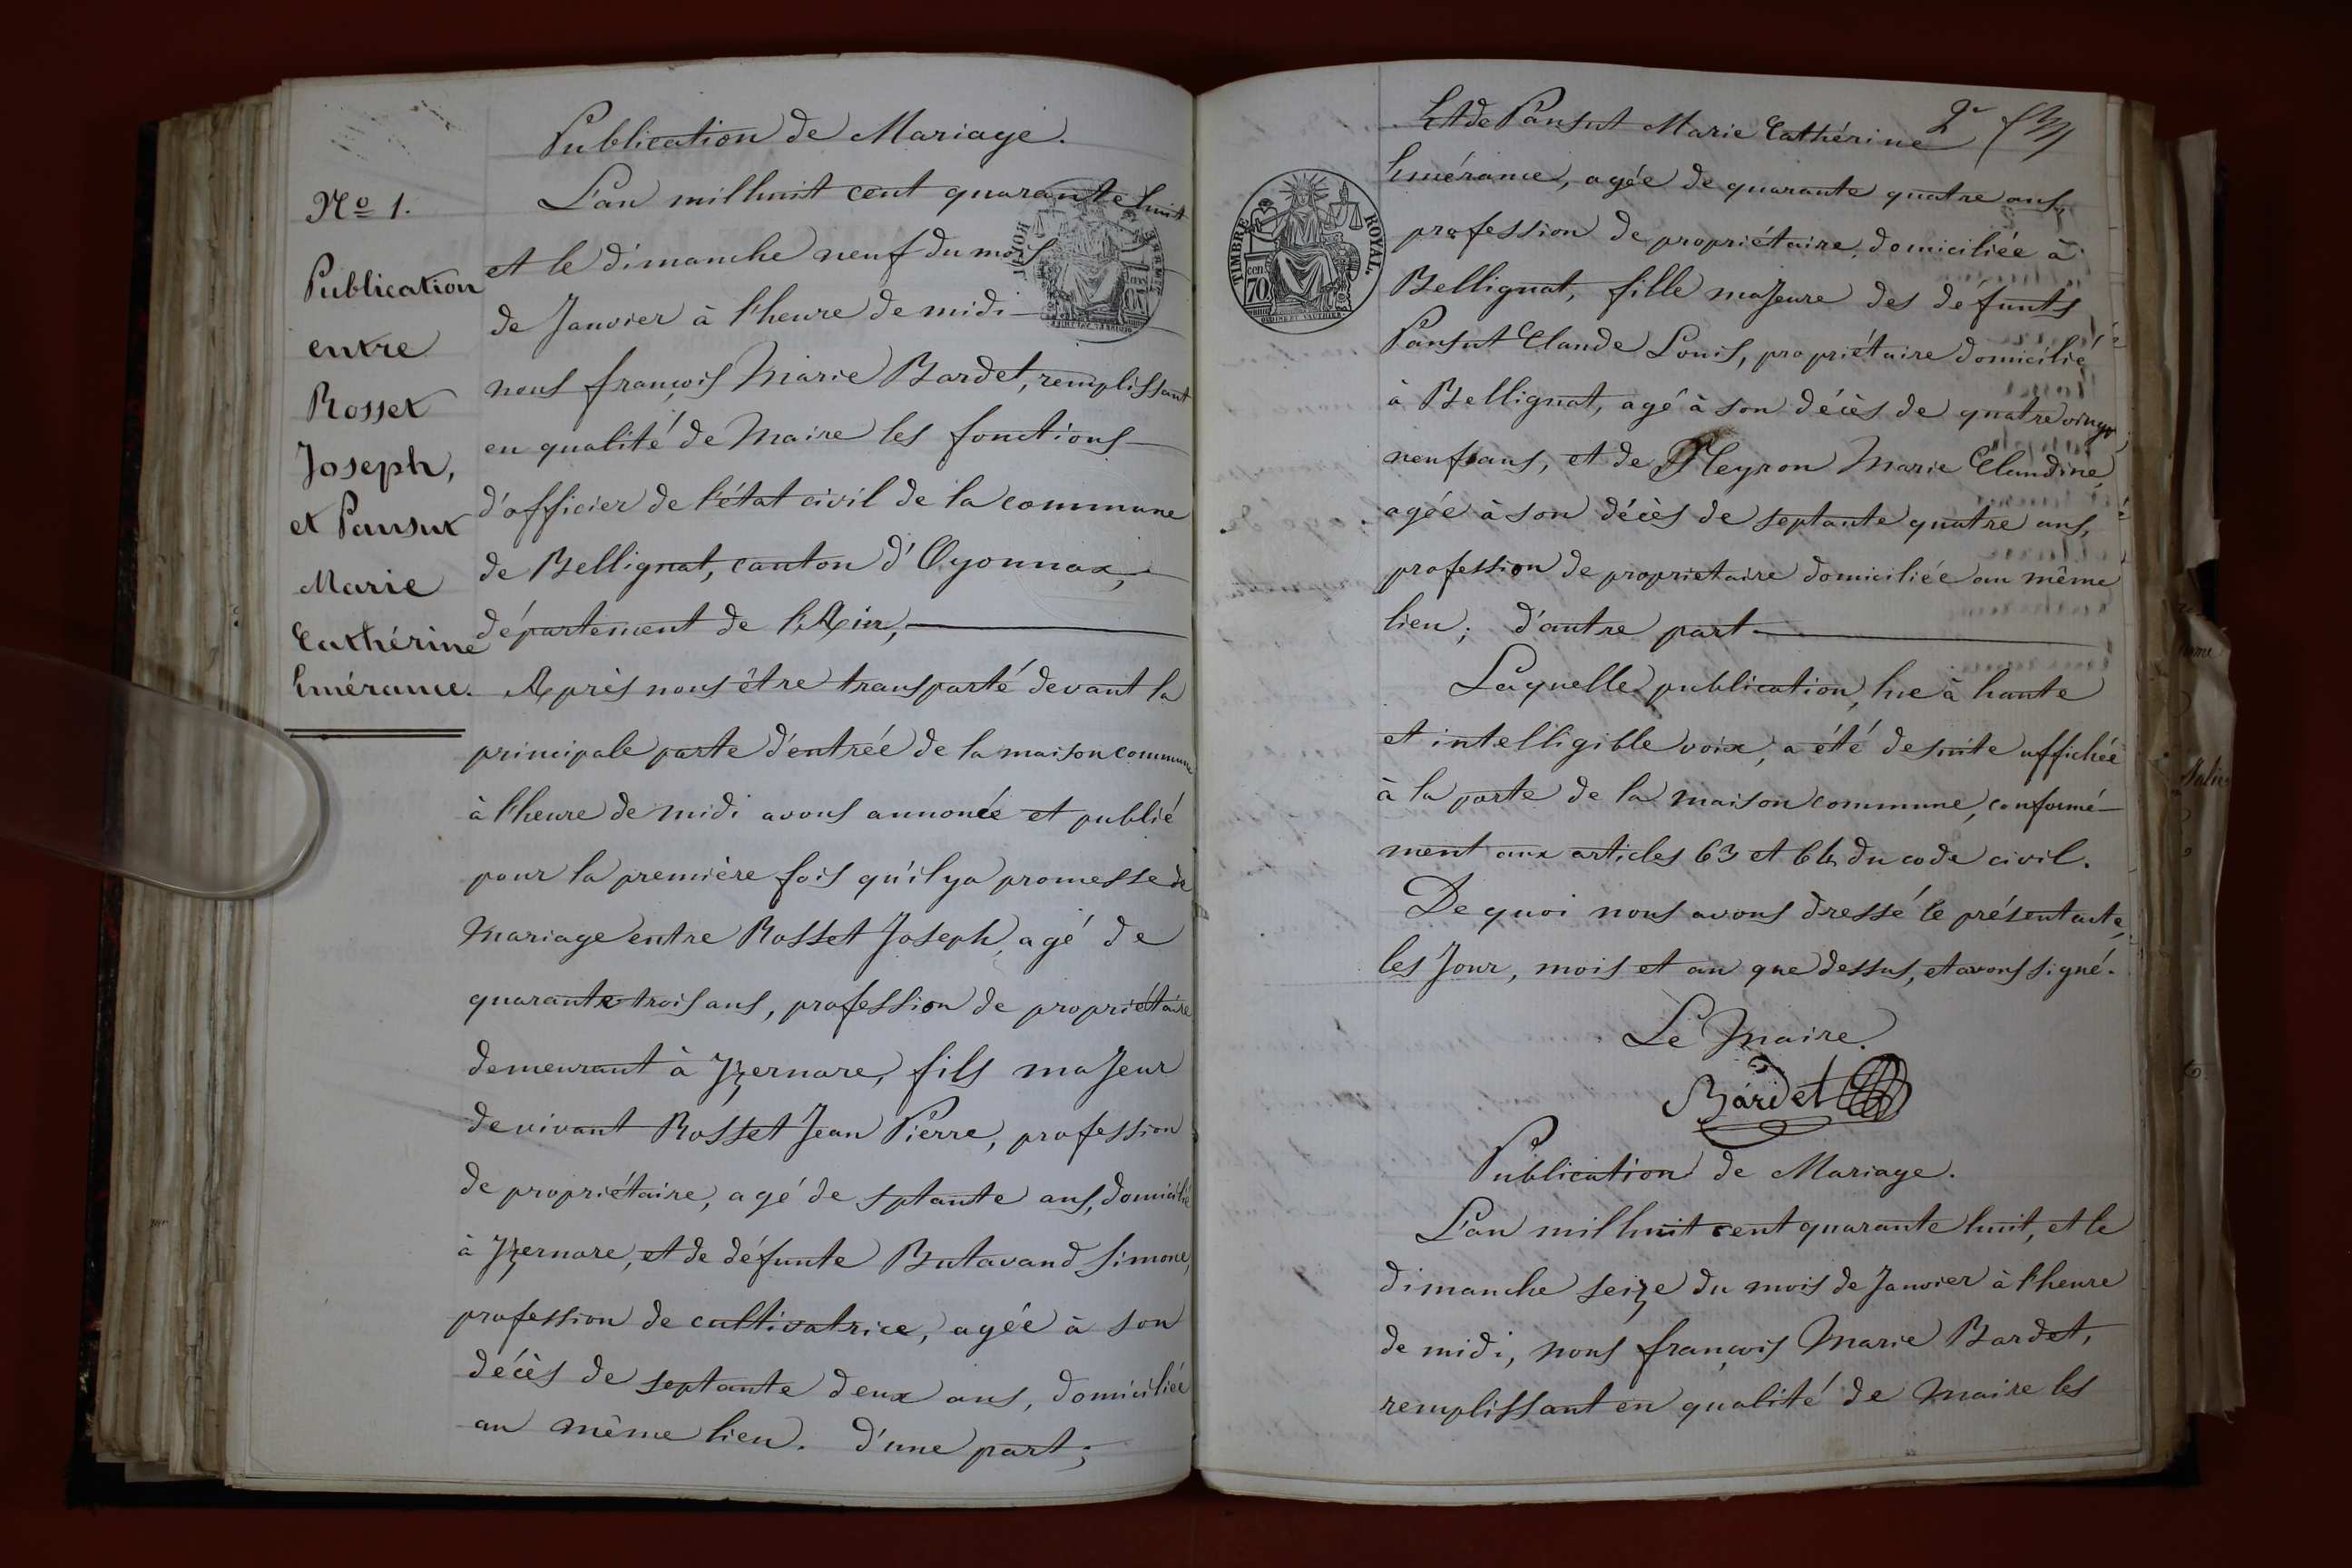 Nº 1.
Publication
entre
Rosset
Joseph,
et Pansut
Marie
Cathérine
Emérance.
Publication de Mariage.
L'an mil huit cent quarante huit
et le dimanche neuf du mois
de Janvier à l'heure de midi
nous françois Marie Bardet, remplissant
en qualité de Maire les fonctions
d'officier de l'état civil de la commune
de Bellignat, canton d'Oyonnax,
département de l'Ain,
Après nous être transporté devant la
principale porte d'entrée de la maison commune
à l'heure de midi avons annoncé et publié
pour la première fois qu'il y a promesse de
Mariage entre Rosset Joseph, agé de
quarante trois ans, profession de propriétaire
demeurant à Yzernore, fils majeur
de vivant Rosset Jean Pierre, profession
de propriétaire, agé de sptante ans, domicilié
à Yzernore, et de défunte Butavand Simone,
profession de cultivatrice, agée à son
décès de septante deux ans, domiciliée
au même lieu. D'une part;
2e
Et de Pansut Marie Cathérine
Emérance, agée de quarante quatre ans,
profession de propriétaire, domiciliée à
Bellignat, fille majeure des défunts
Pansut Claude Louis, propriétaire domicilié
à Bellignat, agé à son décès de quatre vingt
neuf ans, et de Pleyron Marie Claudine,
agée à son décès de septante quatre ans,
profession de proprietaire domiciliée au même
lieu; d'autre part
Laquelle publication, lue à haute
et intelligible voix, a été de suite affichée
à la porte de la maison commune, conformé-
ment aux articles 63 et 64 du code civil.
De quoi nous avons dressé le présent acte,
les Jour, mois et an que dessus, et avons signé.
Le Maire.
Bardet
Publication de Mariage.
L'an mil huit cent quarante huit, et le
dimanche seize du mois de Janvier à l'heure
de midi, nous françois Marie Bardet,
remplissant en qualité de Maire les
TIMBRE ROYAL.
70 cen